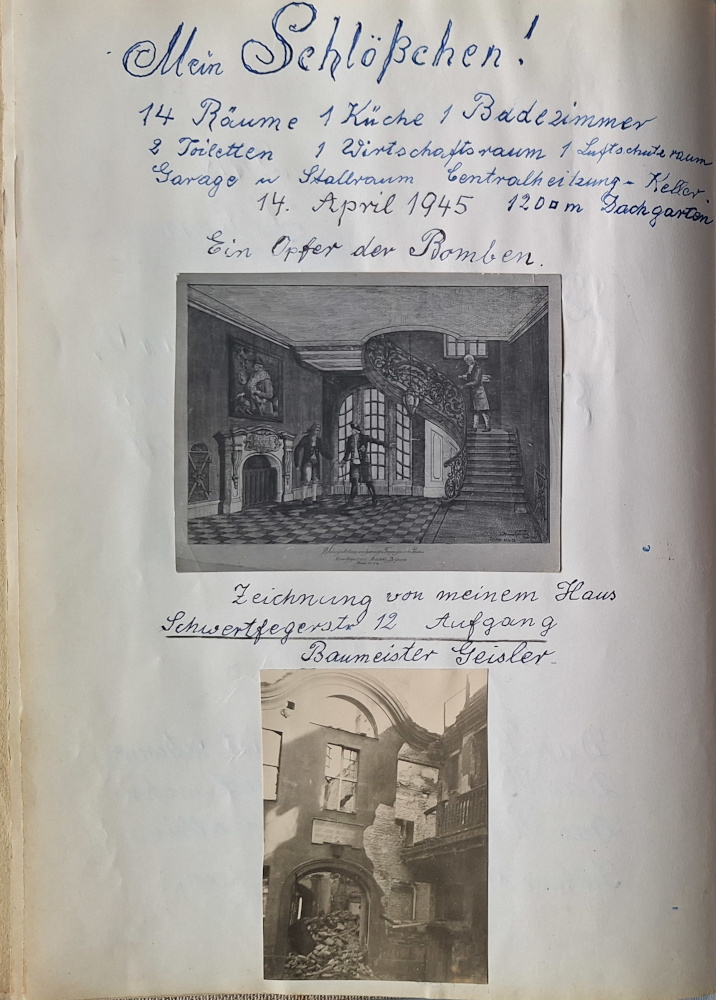 Mein Schlößchen!
14 Räume 1 Küche 1 Badezimmer
2 Toiletten 1 Wirtschaftsraum 1 Luftschutzraum
Garage u Stallraum Centralheitzung - Keller.
14. April 1945 120□m Dachgarten
Ein Opfer der Bomben.
Zeichnung von meinem Haus
Schwertfegerstr 12 Aufgang
Baumeister Geisler